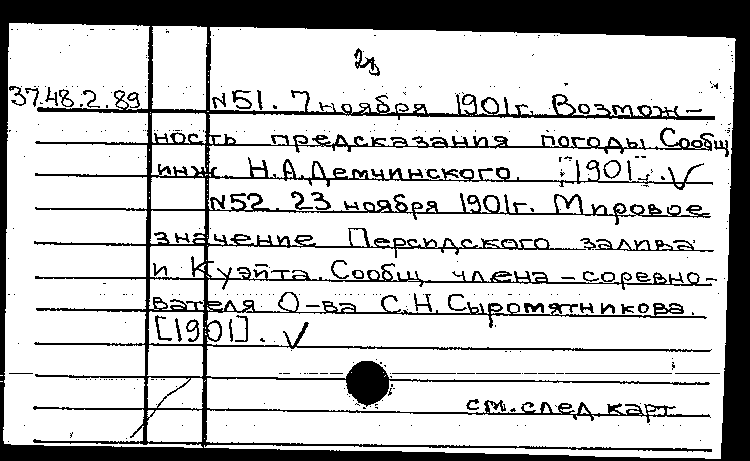 37.48.2.89 N51. 7 ноября 1901г. Возмож-
ность предсказания погоды. Сообщ.
инж. Н.А. Демчинского. [1901]. ✓
N52. 23 ноября 1901г. Мировое
значение Персидского залива
и Куэйта. Сообщ. члена-соревно-
вателя О-ва С.Н. Сыромятникова.
[1901]. ✓
см. след. карт.